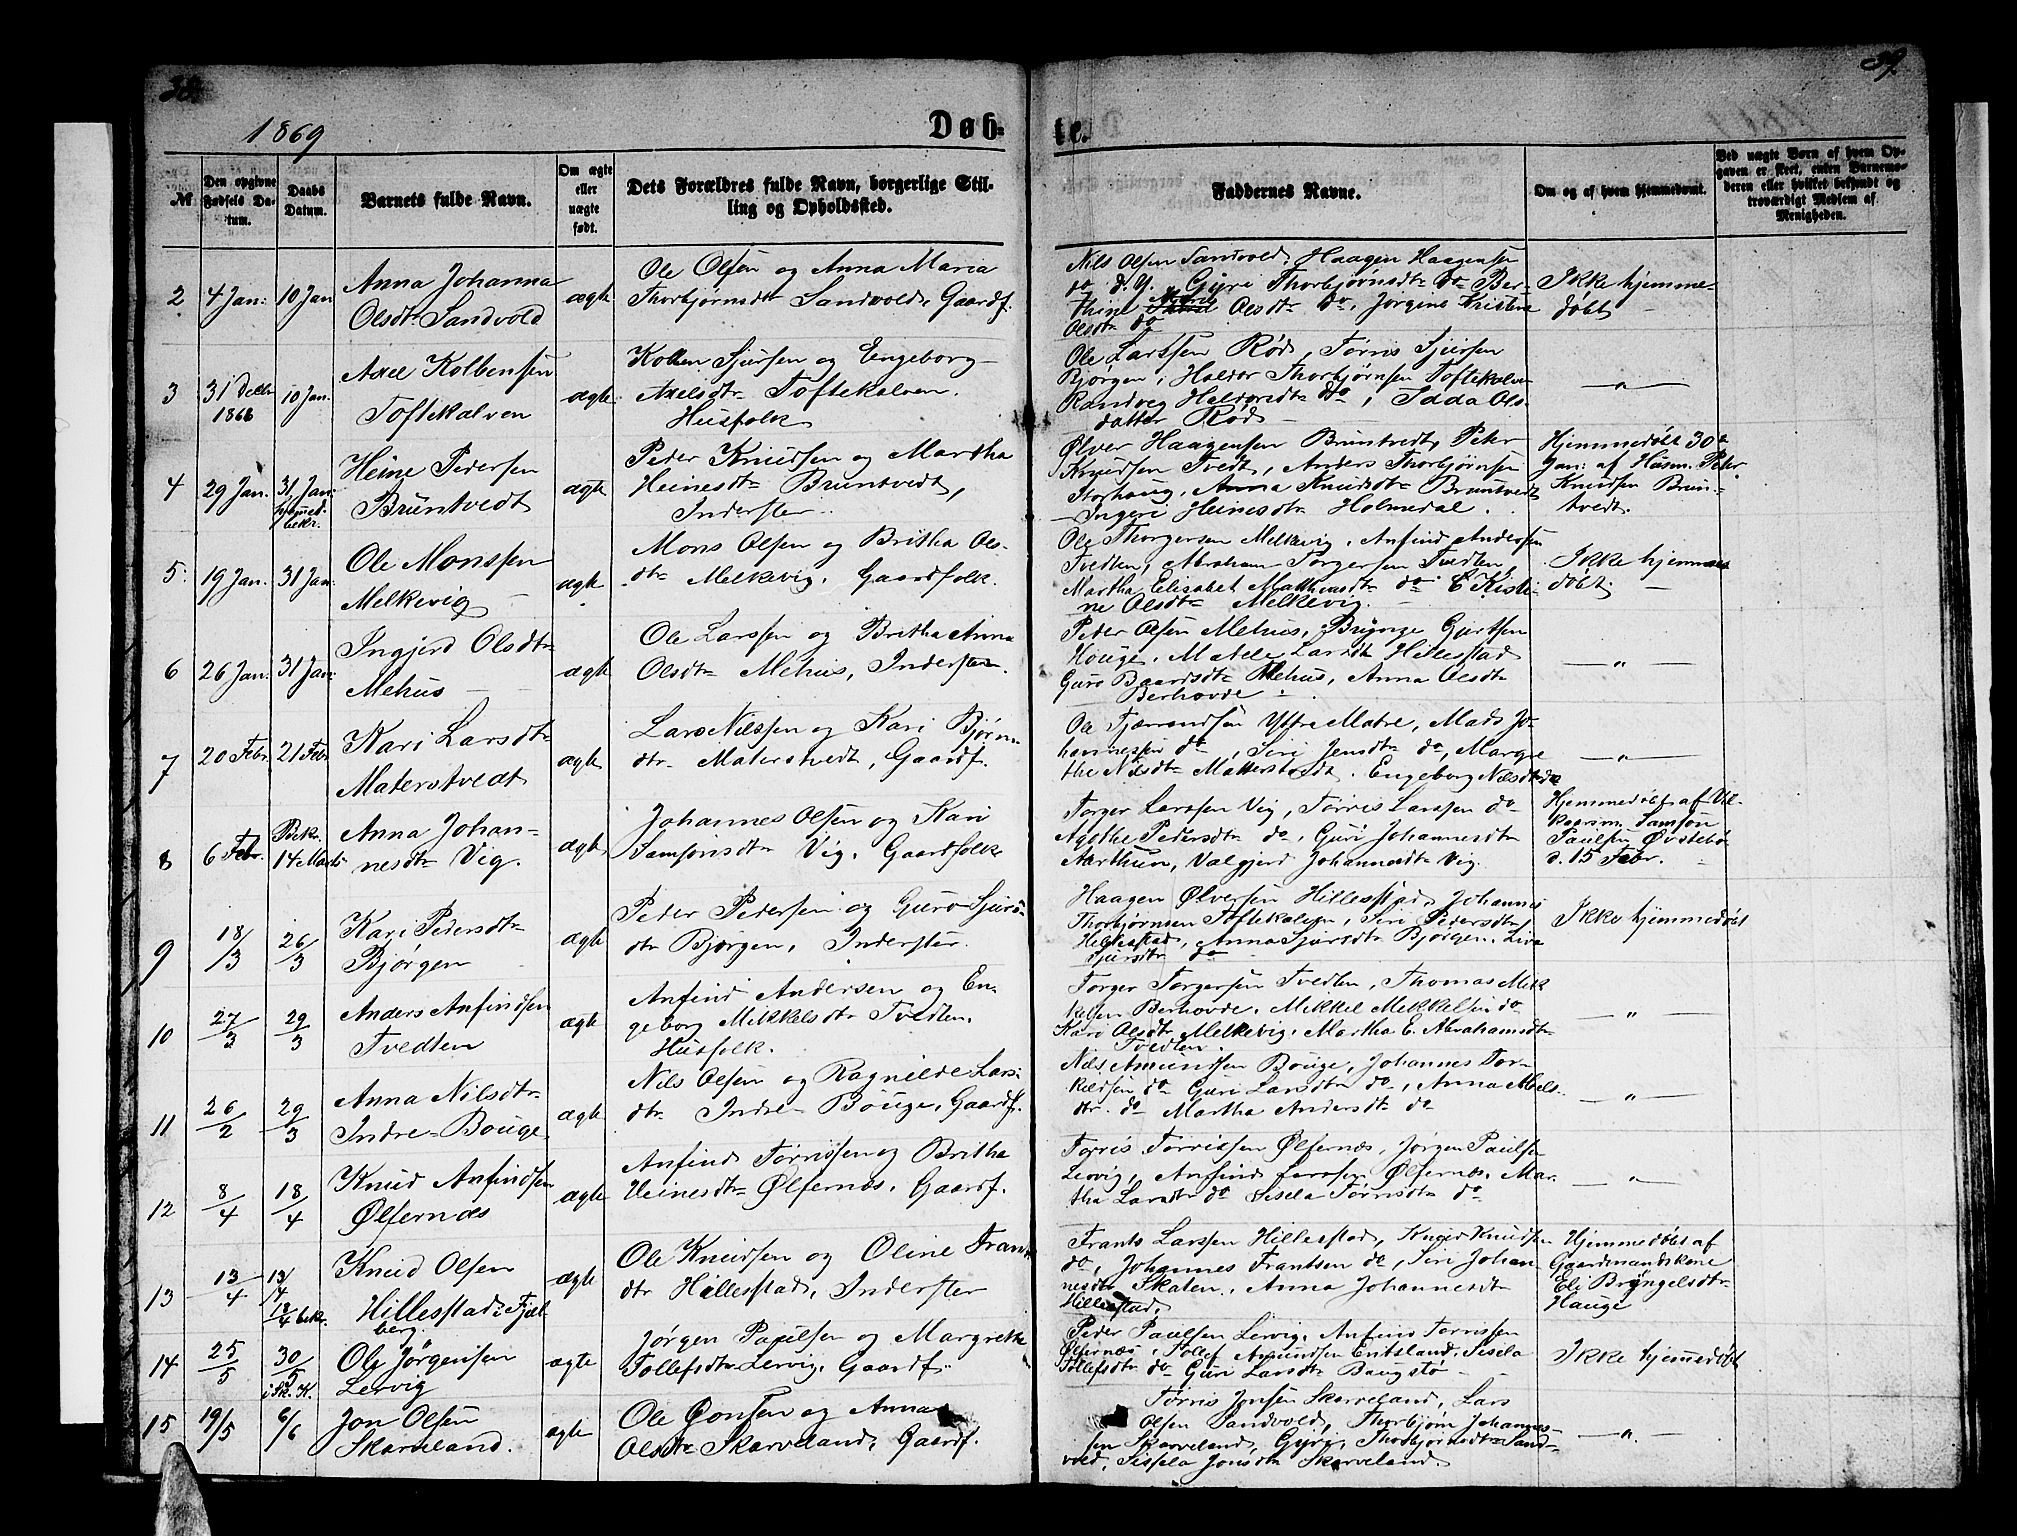 38.
39
1869
Døb-
te.
№
Den opgivne
Fødsels Da-
tum.
Daabs
Datum.
Barnets fulde Navn.
Om ægte
eller
uægte
født.
Dets Forældres fulde Navn, borgerlige Stil-
ling og Opholdssted.
Faddernes Navne.
Om og af hvem hjemmedøbt.
Ved uægte Børn af hvem Op-
gaven er skeet, enten Barnemo-
deren eller hvilket bekjendt og
troværdigt Medlem af
Menigheden.
2
4 Jan:
10 Jan
Anna Johanna
Olsdtr Sandvold
ægte
Ole Olsen og Anna Maria
Thorbjørnsdtr Sandvold, Gaardf.
Nils Olsen Sandvold, Haagen Haagensen
do d. y. Gyri Thorbjørnsdtr do Ber-
thine Olsdtr do, Jørgine Kristine
Olsdtr do
Ikke hjemme-
døbt –
3
31 Decbr
1868
10 Jan.
Axel Kolbensen
Toftekalven
ægte
Kolben Sjursen og Engeborg
Axelsdtr Toftekalven
Husfolk
Ole Larssen Rød, Tørris Sjursen
Bjørgen, Haldor Thorbjørnsen Toftekalven
Randveg Haldorsdtr do, Idda Ols-
datter Rød –
— „ —
4
29 Jan.
31 Jan.
hjemmed.
bekr.
Heine Pedersen
Bruntvedt
ægte
Peder Knudsen og Martha
Heinesdtr Bruntvedt,
Inderster.
Ølver Haagensen Bruntvedt, Peter
Knudsen Tvedt, Anders Thorbjørnsen
Storhaug, Anna Knudsdtr Bruntvedt
– Ingeri Heinesdtr Holmedal.
Hjemmedøbt 30te
Jan: af Husm. Peder
Knudsen Brun-
tvedt.
5
19 Jan.
31 Jan
Ole Monssen
Melkevig –
ægte
Mons Olsen og Britha Ols-
dtr Melkevig. Gaardfolk.
Ole Thorgersen Melkevig, Anfind Andersen
Tvedten, Abraham Torgersen Tvedten,
Martha Elisabet Matthiasdtr do & Kisti-
ne Olsdtr Melkevig.
Ikke hjemme-
døbt. –
6
26 Jan.
31 Jan:
Ingjerd Olsdtr
Mehus –
ægte
Ole Larssen og Britha Anna
Olsdtr Mehus, Inderster.
Peder Olsen Mehus, Gjertsen
Houge, Larsdtr Hillestad
Guro Baardsdtr Mehus, Anna Olsdtr
Berhovde.
— „ —
7
20 Febr.
21 Febr
Kari Larsdtr
Materstvedt
ægte
Lars Nilssen og Kari Bjørns-
dtr Materstvedt, Gaardf.
Ole Tjærandsen Yttre Matre, Mads Jo-
hannessen do, Siri Jensdtr do, Margre
the Nilsdtr Matterstvedt. Engeborg Nilsdtr do
— „ —
8
6 Febr.
Bekr.
14 Marts
Anna Johan-
nesdtr Vig.
ægte
Johannes Olsen og Kari
Samsonsdtr Vig. Gaardfolk
Torger Larssen Vig, Tørris Larssen do
Agethe Pedersdtr do, Guri Johannesdtr
Aarthun, Valgjerd Johannesdtr Vig.
Hjemmedøbt af Vil-
kaarsm. Samson
Paulsen Øvstebø
d. 15 Febr. –
9
18/3
26/3
Kari Pedersdtr
Bjørgen
ægte
Peder Pedersen og Guro Sjurs-
dtr Bjørgen, Inderster.
Haagen Ølversen Hillestad, Johannes
Thorbjørnsen Toftekalven, Siri Pedersdtr
Hillestad, Anna Sjursdtr Bjørgen, Liva
Sjursdtr do
Ikke hjemmedøbt
10
27/3
29/3
Anders Anfindsen
Tvedten
ægte
Anfind Andersen og En-
geborg Mikkelsdtr Tvedten.
Husfolk.
Torger Torgersen Tvedten, Thomas Mik
kelsen Berhovde, Mikkel Mikkelsen do
Kari Olsdtr Melkevig, Martha E. Abrahamsdtr
Tvedten.
— „ —
11
26/2
29/3
Anna Nilsdtr
Indre-Bouge
ægte
Nils Olsen og Ragnilde Lars-
dtr Indre-Bouge, Gaardf.
Nils Amundsen Bouge, Johannes Tor-
keldsen do Guri Larsdtr do, Anna Nils-
dtr. do Martha Andersdtr do
— „ —
12
8/4
18/4
Knud Anfindsen
Ølfernæs
ægte
Anfind Tørrissen og Britha
Heinesdtr Ølfernæs, Gaardf.
Tørris Tørrissen Ølfernæs, Jørgen Paulsen
Lervig, Anfind Larssen Ølfernæs, Mar-
tha Larsdtr do Sisela Tørrisdtr do
— „ —
13
13/4
13/4
18/4 bekr.
Knud Olsen
Hillestad i Fjel-
berg.
ægte
Ole Knudsen og Oline Frants
dtr Hillestad, Inderster
Frants Larssen Hillestad, Knud Knudsen
do, Johannes Frantsen do, Siri Johan
nesdtr Skaten, Anna Johannesdtr
Hillestad.
Hjemmedøbt af
Gaardmandskone
Eli Bryngelsdtr
Hauge
14
25/5
30/5
i Sk. K.
Ole Jørgensen
Lervig
ægte
Jørgen Paulsen og Margrethe
Tollefsdtr Lervig, Gaardf.
Peder Paulsen Lervig, Anfind Tørrissen
Ølfernæs, Tollef Amundsen Enteland, Sisela
Tollefsdtr do Guri Larsdtr Baugstø
Ikke hjemmedøbt
15
19/5
6/6
Jon Olsen
Skarveland.
ægte
Ole Jonsen og Anna
Olsdtr Skarveland, Gaardf.
Tørris Jonsen Skarveland, Lars
Olsen Sandvold, Thorbjørn Johannes-
sen Skarveland, Gyri Thorbjørnsdtr Sand-
vold, Sissela Jonsdtr Skarveland.
— „ —